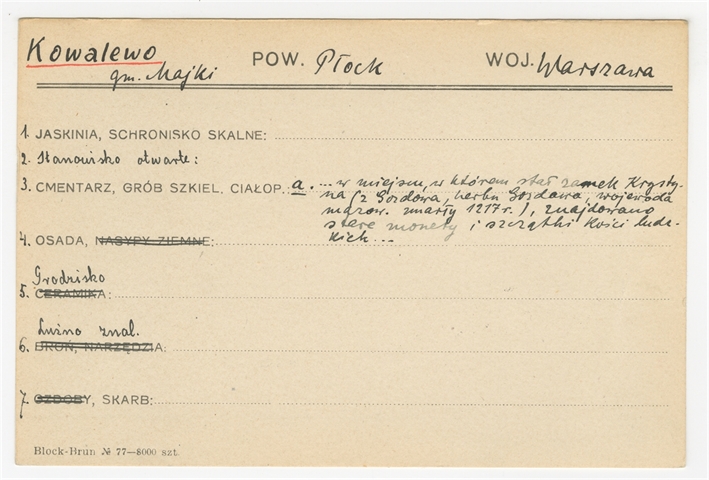 Kowalewo POW. Płock WOJ. Warszawa
gm. Majki
1. JASKINIA, SCHRONISKO SKALNE:
2. Stanowisko otwarte:
3. CMENTARZ, GRÓB SZKIEL. CIAŁOP. a. ... w miejscu, w którem stał zamek Krysty-
na (z Gozdowa, herbu Gozdawa, wojewoda
mazow. zmarły 1217 r.), znajdowano
stare monety i szczątki kości ludz-
kich ...
4. OSADA, NASYPY ZIEMNE:
Grodzisko
5. CERAMIKA:
Luźno znal.
6. BROŃ, NARZĘDZIA:
7. OZDOBY, SKARB:
Block-Brun № 77—8000 szt.